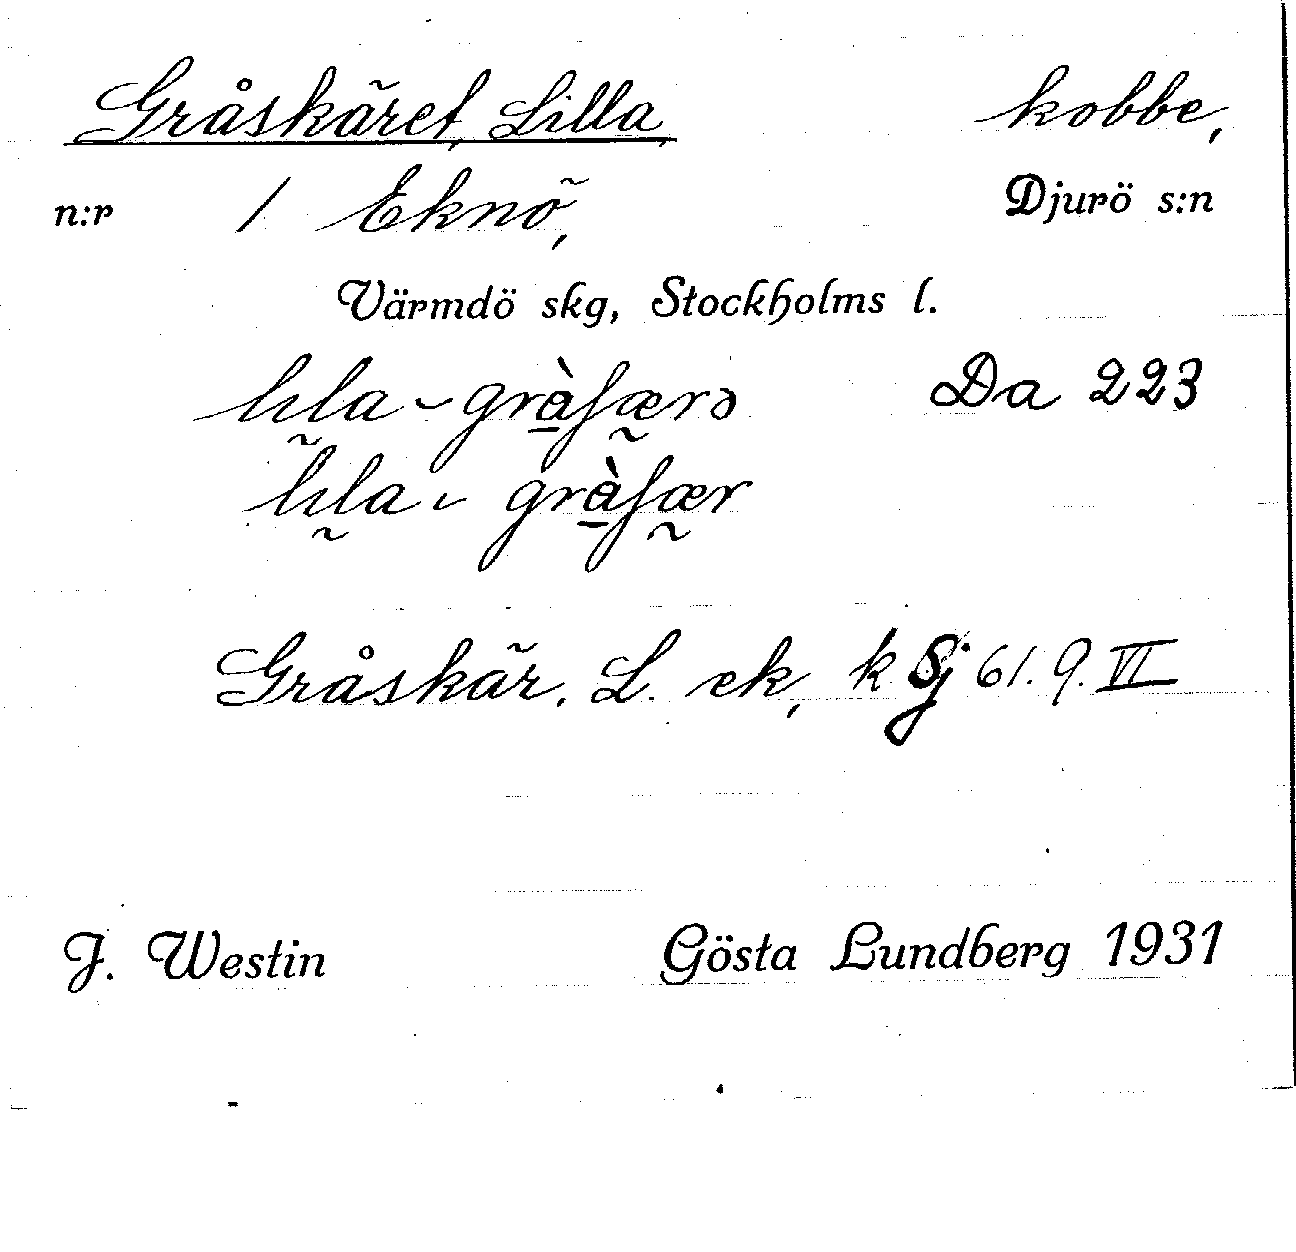 Gråskäret, Lilla, kobbe,
n:r 1 Eknö, Djurö s:n
Värmdö skg, Stockholms l.
lıla - gràʃærə Da 223
lıla - gràʃær
Gråskär. L. ek, k Sj 61. 9. VI
J. Westin Gösta Lundberg 1931